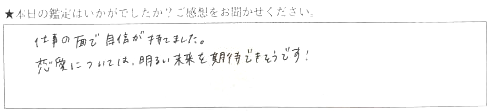 ★本日の鑑定はいかがでしたか？ご感想をお聞かせください。
仕事の面で自信が持てました。
恋愛については、明るい未来を期待できそうです！